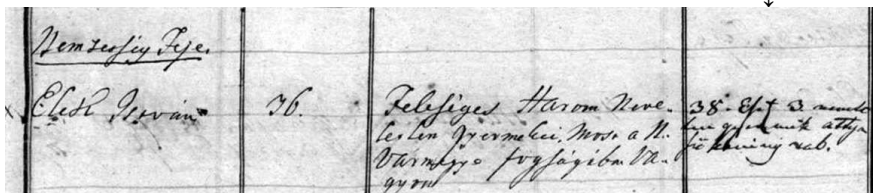 Nemzetség Feje.
Elekk István
36.
Feleséges Három Neve-
letlen Gyermekei, Most a N.
Vármegye fogságába Va-
gyon
38. Est 3 nevelet
len gyermek attya
rab.